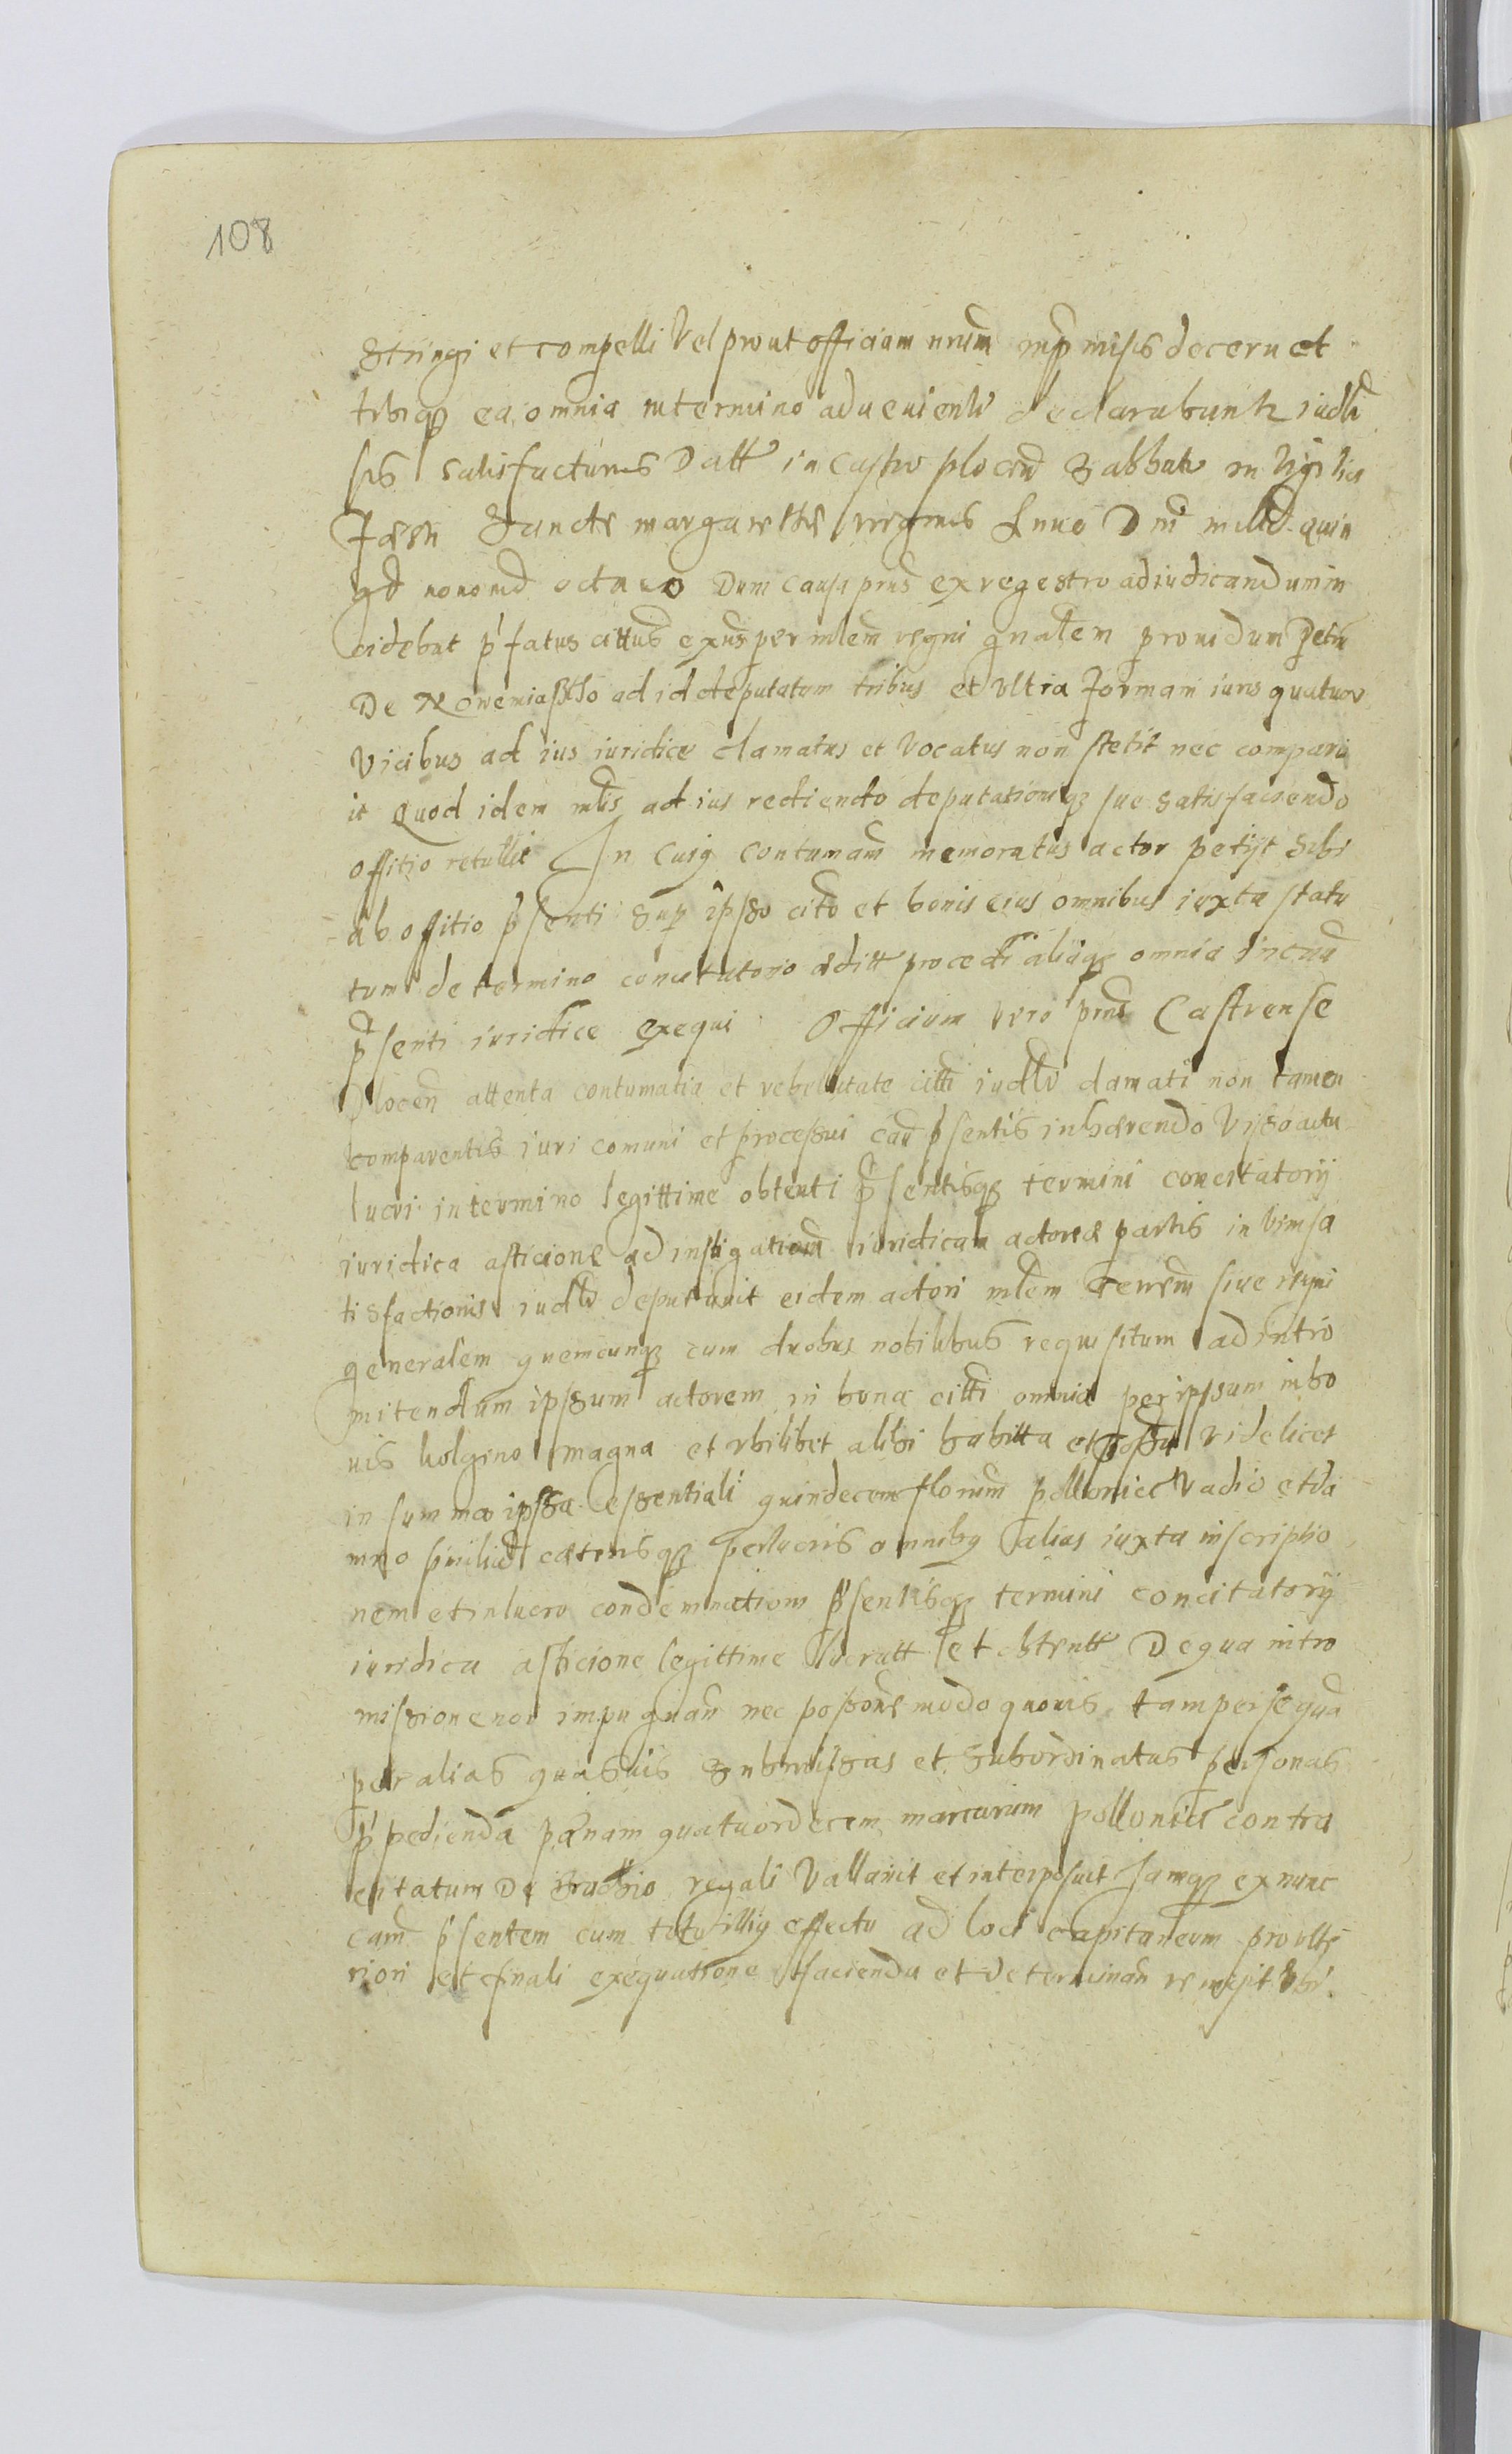 108
Stringi et compelli Vel prout officium nrum in p misis decernet
tibiq ea omnia in termino advenienti declarabunt iudli
sis satisfacturus Datt in Castro plocen Sabbato in Vigilia
Festi Sancte margarethe virginis Anno Dni milld quin
gd nonomd octavo Dum causa pns ex regestro ad iudicandum in
cidebat p fatus cittus exns per mlem regni gnalem providum Petru
De Nowemiasto ad id deputatum tribus et Ultra Formam iuris quatuor
Vicibus ad ius iuridice clamatus et Vocatus non stetit nec compari
it Quod idem mlis ad ius reddendo deputationiq sue satisfaciendo
offitio retullit In Cuiq contumam memoratus actor petijt Sibi
ab offitio p senti sup ipsso cito et bonis eius omnibus iuxta statu
tum de termino concitatorio editt procedi aliaq omnia in cau
p senti iuridice exequi Officium Vero pns Castrense
Plocen attenta contumatia et rebellitate citti iudlr clamati non tamen
comparentis iuri comuni et processui cau p sentis inhærendo Viso actu
lucri in termino legittime obtenti p sentisq termini concitatorij
iuridica asticione ad instigationem iuridicam actoreæ partis in Vim sa
tisfactionis iudlr deputavit eidem actori mlem terrem sive regni
generalem quemcunq cum duobus nobilibus requisitum ad intro
mitendum ipssum actorem in bona citti omnia per ipssum in bo
nis holgino magna et ubilibet alibi habitta et posssa videlicet
in summa ipssa essentiali quindecem florium pollonicl Vadio et da
mno similiud cæterisq perlucris omnibq alias iuxta inscriptio
nem et in lucro condemnationis p sentisq termini concitatorij
iuridica asticione legittime lucratt et obtentt De qua intro
missione non impugnan nec possone modo quovis tam per se qua
per alias quasuis submissas et subordinatas personas
p pedienda pænam quatuordecem marcarum pollonicl contra
citatum De brachio regali Vallavit et interposuit Iamq ex nunc
cam p sentem cum toto illiq effectu ad loci capitaneum pro ulte
riori et finali exequutione facienda et determinan remisit Ubi